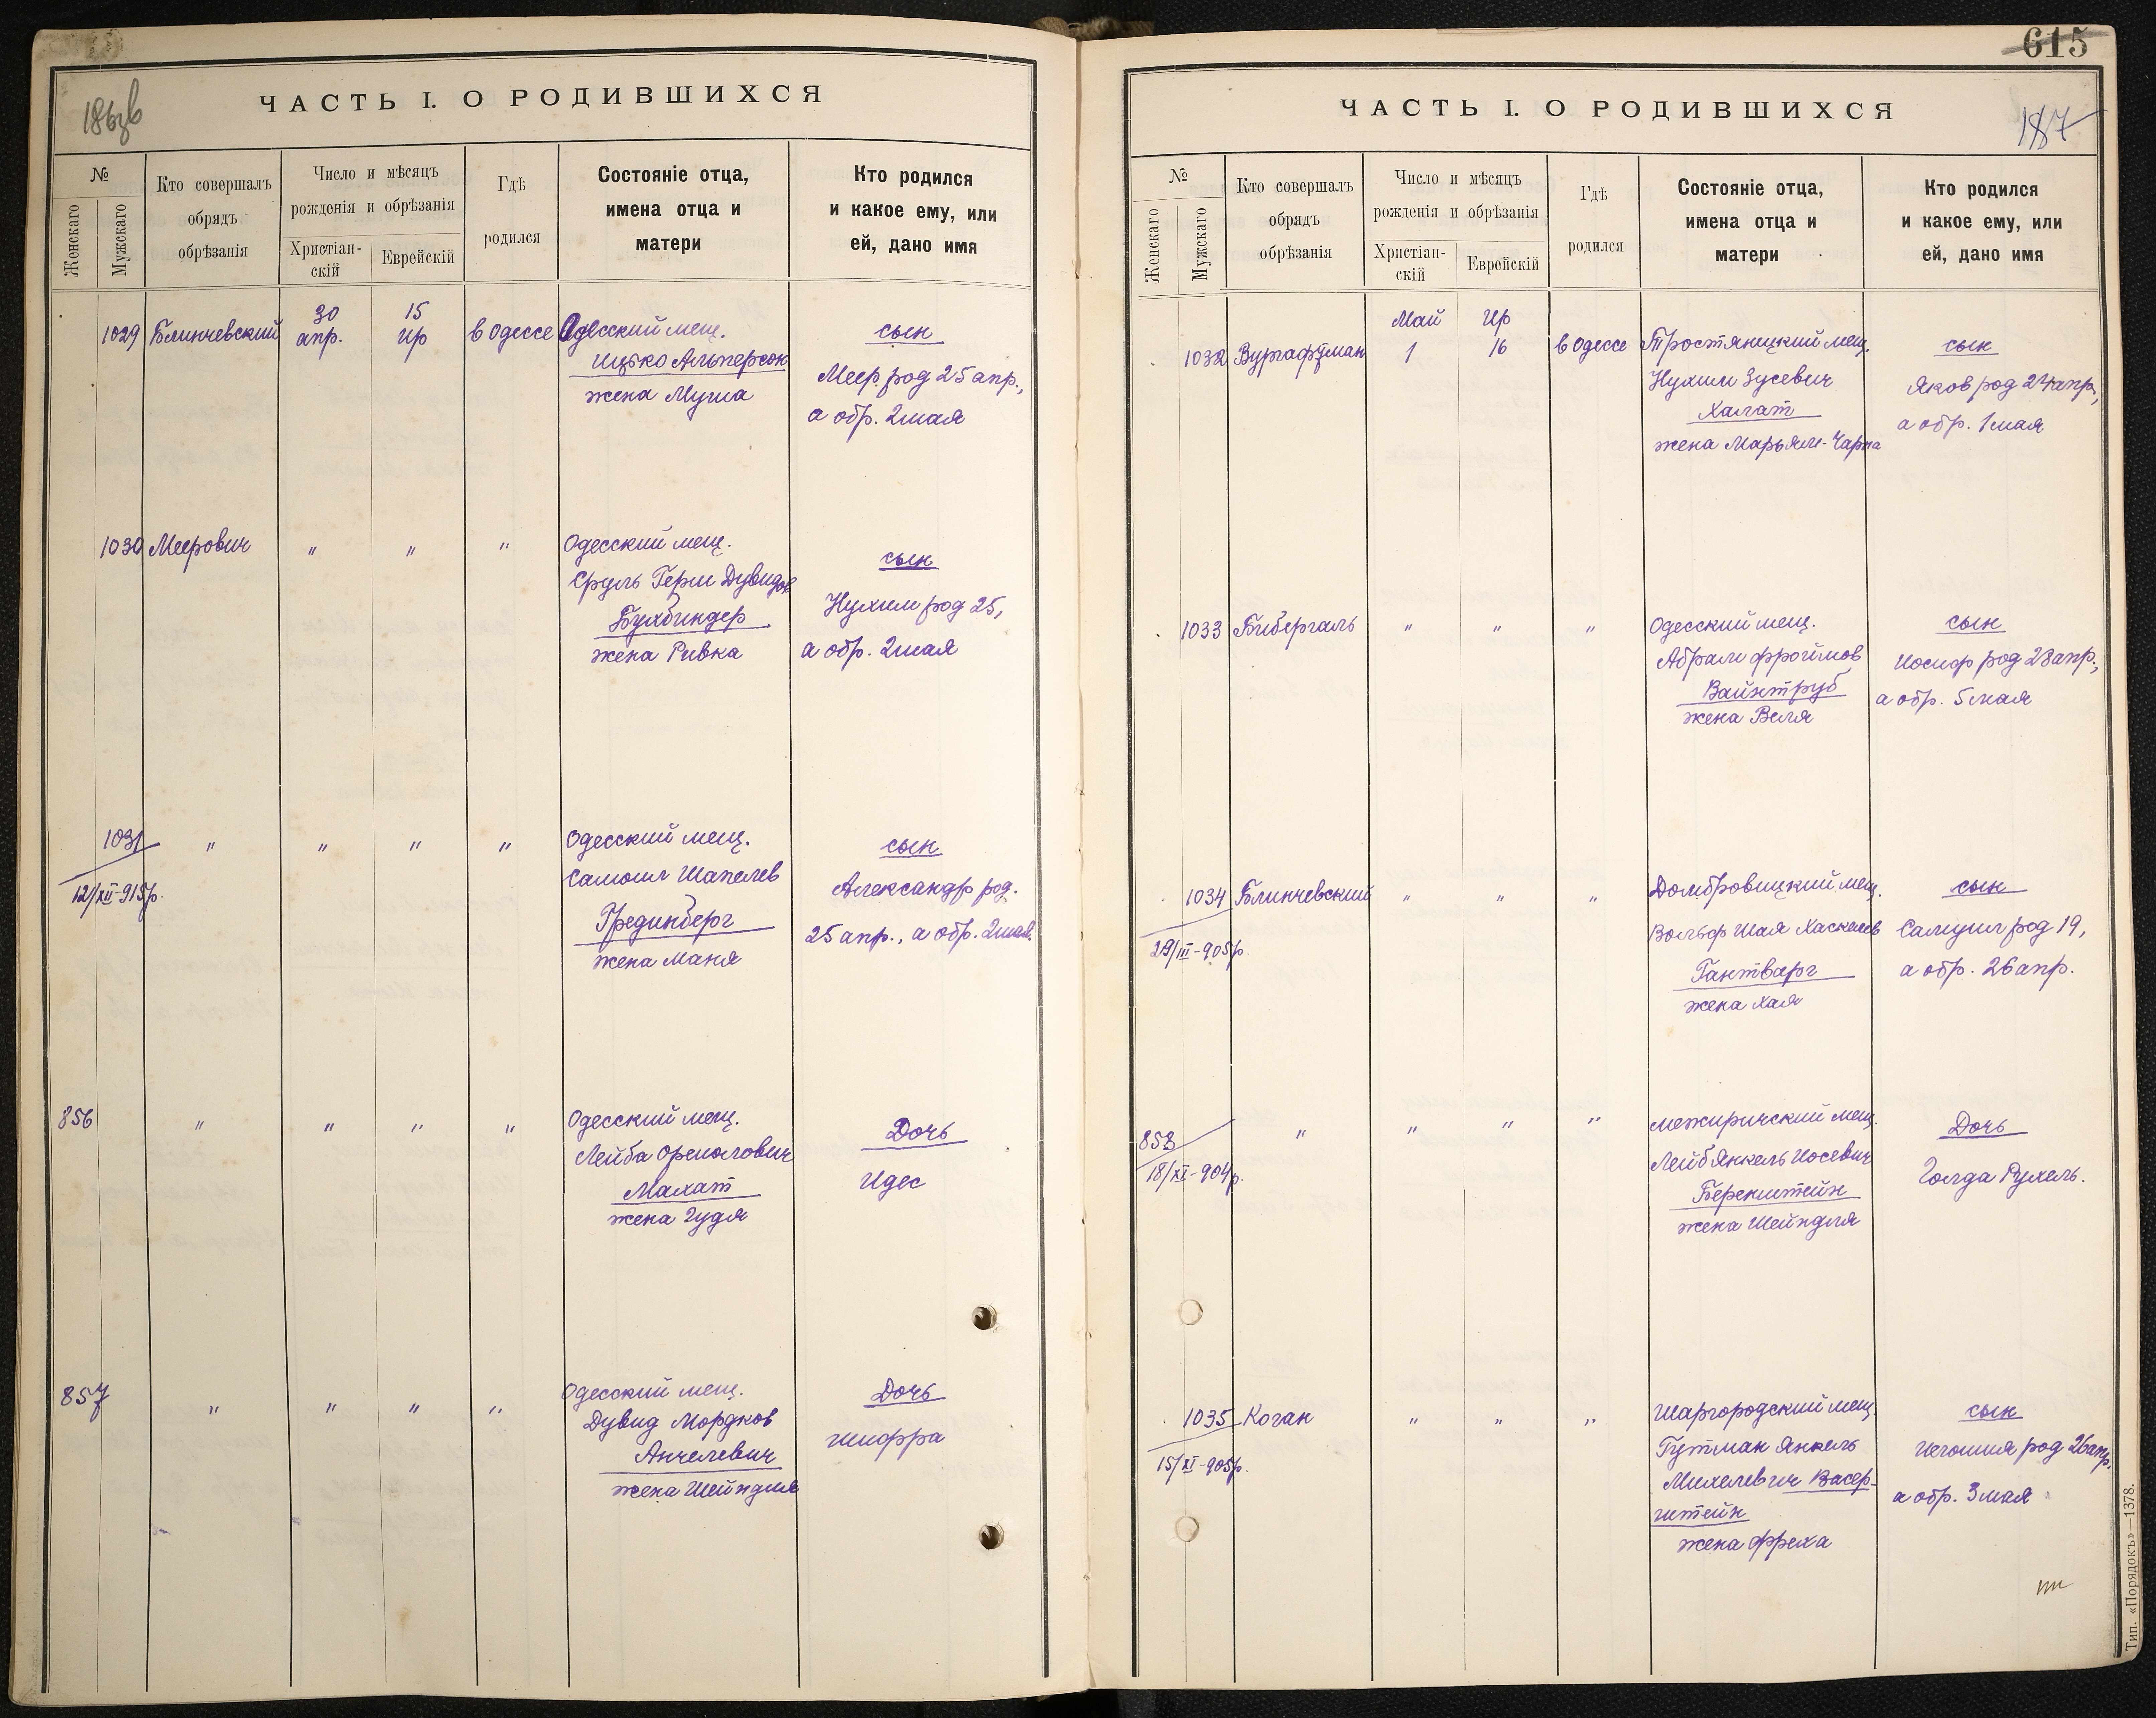 186зв
ЧАСТЬ I. О РОДИВШИХСЯ
№
Женскаго
Мужскаго
Кто совершалъ
обрядъ
обрѣзанія
Число и мѣсяцъ
рожденія и обрѣзанія
Христіан-
скій
Еврейскій
Гдѣ
родился
Состояніе отца,
имена отца и
матери
Кто родился
и какое ему, или
ей, дано имя
1029 Блинчевский 30 апр. 15 Ир в Одессе Одесский мещ.
Ицько Альперсон
жена Муша
сын
Меер род 25 апр.,
а обр. 2 мая
1030 Меерович " " " Одесский мещ.
Сруль Герш Дувидов
Бухбиндер
жена Ривка
сын
Нухим род 25,
а обр. 2 мая
1031 " " " " Одесский мещ.
12/XII-915р.
Самоил
Грединберг
жена Маня
сын
Александр род.
25 апр., а обр. 2 мая.
856 " " " " Одесский мещ.
Лейба
Махат
жена Гудя
Дочь
Идес
857 " " " " Одесский мещ.
Дувид Мордков
Анчелевич
жена Шейндля
Дочь
Шифра
615
187
ЧАСТЬ I. О РОДИВШИХСЯ
№
Женскаго
Мужскаго
Кто совершалъ
обрядъ
обрѣзанія
Число и мѣсяцъ
рожденія и обрѣзанія
Христіан-
скій
Еврейскій
Гдѣ
родился
Состояніе отца,
имена отца и
матери
Кто родился
и какое ему, или
ей, дано имя
1032 Май 1 Ир 16 в Одессе Тростянецкий мещ.
Нухим Зусевич
Халат
жена Марьям-Чарна
сын
Яков род 24 апр.,
а обр. 1 мая
1033 Бибергаль " " " Одесский мещ.
Абрам Фроймов
Вайнтруб
жена Веля
сын
Иосиф род 28 апр.,
а обр. 5 мая
1034 Блинчевский " " " Домбровицкий мещ.
29/III-905р.
Вольф Шая Хаскелев
Гантварг
жена Хая
сын
Самуил род 19,
а обр. 26 апр.
858 " " " " Межиричский мещ.
18/XI-904р.
Лейб Янкель Иосевич
Беренштейн
жена Шейндля
Дочь
Голда Рухель.
1035 Коган " " " Шаргородский мещ.
15/XI-905р.
Гутман Янкель
Михелевич Васер-
штейн
жена Фреха
сын
Иегошия род 26 апр.
а обр. 3 мая
Тип. «Порядокъ»—1378.